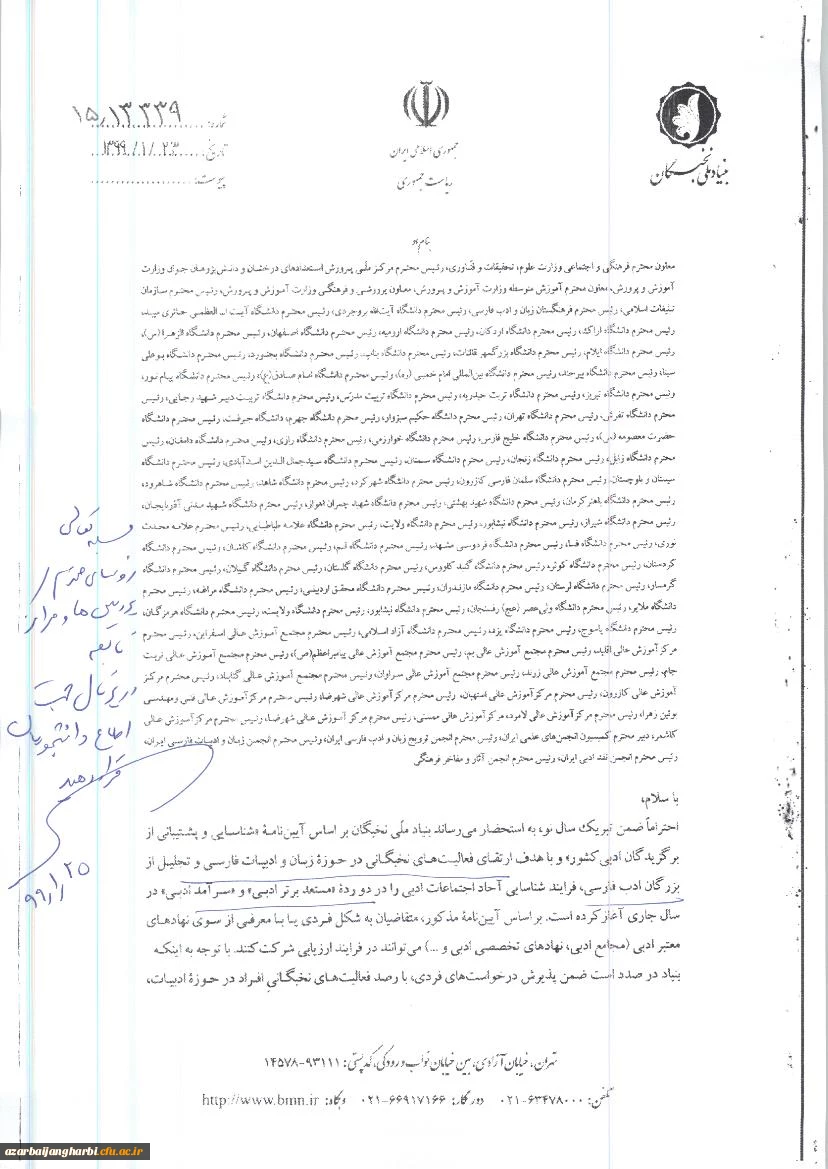 شماره: ۱۵/۱۳۳۳۹
تاریخ: ۱۳۹۹/۱/۲۳
پیوست:
جمهوری اسلامی ایران
ریاست جمهوری
بنیاد ملی نخبگان
بنام او
معاون محترم فرهنگی و اجتماعی وزارت علوم، تحقیقات و فنّاوری، رئیس محترم مرکز ملّی پرورش استعدادهای درخشان و دانش‌پژوهان جوان وزارت
آموزش و پرورش، معاون محترم آموزش متوسطه وزارت آموزش و پرورش، معاون پرورشی و فرهنگی وزارت آموزش و پرورش، رئیس محترم سازمان
تبلیغات اسلامی، رئیس محترم فرهنگستان زبان و ادب فارسی، رئیس محترم دانشگاه آیت‌الله بروجردی، رئیس محترم دانشگاه آیت ا... العظمی حائری میبد،
رئیس محترم دانشگاه اراک، رئیس محترم دانشگاه اردکان، رئیس محترم دانشگاه ارومیه، رئیس محترم دانشگاه اصفهان، رئیس محترم دانشگاه الزهرا (س)،
رئیس محترم دانشگاه ایلام، رئیس محترم دانشگاه بزرگمهر قائنات، رئیس محترم دانشگاه بناب، رئیس محترم دانشگاه بجنورد، رئیس محترم دانشگاه بوعلی
سینا، رئیس محترم دانشگاه بیرجند، رئیس محترم دانشگاه بین‌المللی امام خمینی (ره)، رئیس محترم دانشگاه امام صادق(ع)، رئیس محترم دانشگاه پیام نور،
رئیس محترم دانشگاه تبریز، رئیس محترم دانشگاه تربت حیدریه، رئیس محترم دانشگاه تربیت مدرّس، رئیس محترم دانشگاه تربیت دبیر شهید رجایی، رئیس
محترم دانشگاه تفرش، رئیس محترم دانشگاه تهران، رئیس محترم دانشگاه حکیم سبزوار، رئیس محترم دانشگاه جهرم، دانشگاه جیرفت، رئیس محترم دانشگاه
حضرت معصومه (س)، رئیس محترم دانشگاه خلیج فارس، رئیس محترم دانشگاه خوارزمی، رئیس محترم دانشگاه رازی، رئیس محترم دانشگاه دامغان، رئیس
محترم دانشگاه زابل، رئیس محترم دانشگاه زنجان، رئیس محترم دانشگاه سمنان، رئیس محترم دانشگاه سیدجمال الدین اسدآبادی، رئیس محترم دانشگاه
سیستان و بلوچستان، رئیس محترم دانشگاه سلمان فارسی کازرون، رئیس محترم دانشگاه شهرکرد، رئیس محترم دانشگاه شاهد، رئیس محترم دانشگاه شاهرود،
رئیس محترم دانشگاه باهنر کرمان، رئیس محترم دانشگاه شهید بهشتی، رئیس محترم دانشگاه شهید چمران اهواز، رئیس محترم دانشگاه شهید مدنی آذربایجان،
رئیس محترم دانشگاه شیراز، رئیس محترم دانشگاه نیشابور، رئیس محترم دانشگاه ولایت، رئیس محترم دانشگاه علامه طباطبایی، رئیس محترم علامه محدث
نوری، رئیس محترم دانشگاه فسا، رئیس محترم دانشگاه فردوسی مشهد، رئیس محترم دانشگاه قم، رئیس محترم دانشگاه کاشان، رئیس محترم دانشگاه
کردستان، رئیس محترم دانشگاه کوثر، رئیس محترم دانشگاه گنبد کاووس، رئیس محترم دانشگاه گلستان، رئیس محترم دانشگاه گیلان، رئیس محترم دانشگاه
گرمسار، رئیس محترم دانشگاه لرستان، رئیس محترم دانشگاه مازندران، رئیس محترم دانشگاه محقق اردبیلی، رئیس محترم دانشگاه مراغه، رئیس محترم
دانشگاه ملایر، رئیس محترم دانشگاه ولی‌عصر (عج) رفسنجان، رئیس محترم دانشگاه نیشابور، رئیس محترم دانشگاه ولایت، رئیس محترم دانشگاه هرمزگان،
رئیس محترم دانشگاه یاسوج، رئیس محترم دانشگاه یزد، رئیس محترم دانشگاه آزاد اسلامی، رئیس محترم مجتمع آموزش عالی اسفراین، رئیس محترم
مرکز آموزش عالی اقلید، رئیس محترم مجتمع آموزش عالی بم، رئیس محترم مجتمع آموزش عالی پیامبراعظم(ص)، رئیس محترم مجتمع آموزش عالی تربت
جام، رئیس محترم مجتمع آموزش عالی زرند، رئیس محترم مجتمع آموزش عالی سراوان، رئیس محترم مجتمع آموزش عالی گناباد، رئیس محترم مرکز
آموزش عالی کازرون، رئیس محترم مرکز آموزش عالی استهبان، رئیس محترم مرکز آموزش عالی شهرضا، رئیس محترم مرکز آموزش عالی فنی ومهندسی
بوئین زهرا، رئیس محترم مرکز آموزش عالی لامرد، مرکز آموزش عالی ممسنی، رئیس محترم مرکز آموزش عالی شهرضا، رئیس محترم مرکز آموزش عالی
کاشمر، دبیر محترم کمیسیون انجمن‌های علمی ایران، رئیس محترم انجمن ترویج زبان و ادب فارسی ایران، رئیس محترم انجمن زبان و ادبیات فارسی ایران،
رئیس محترم انجمن نقد ادبی ایران، رئیس محترم انجمن آثار و مفاخر فرهنگی
با سلام،
احتراماً ضمن تبریک سال نو، به استحضار می‌رساند بنیاد ملّی نخبگان بر اساس آیین‌نامهٔ «شناسایی و پشتیبانی از
برگزیدگان ادبی کشور» و با هدف ارتقای فعالیت‌های نخبگانی در حوزهٔ زبان و ادبیات فارسی و تجلیل از
بزرگان ادب فارسی، فرایند شناسایی آحاد اجتماعات ادبی را در دو ردهٔ «مستعد برتر ادبی» و «سرآمد ادبی» در
سال جاری آغاز کرده است. بر اساس آیین‌نامهٔ مذکور، متقاضیان به شکل فردی یا با معرفی از سوی نهادهای
معتبر ادبی (مجامع ادبی، نهادهای تخصصی ادبی و ...) می‌توانند در فرایند ارزیابی شرکت کنند. با توجه به اینکه
بنیاد در صدد است ضمن پذیرش درخواست‌های فردی، با رصد فعالیت‌های نخبگانی افراد در حوزهٔ ادبیات،
بسمه تعالی
روسای محترم /
پردیس ها و مراکز
تابعه
در پرتال جهت
اطلاع دانشجویان
قرار دهید
۹۹/۱/۲۵
تهران، خیابان آزادی، بین خیابان نواب و رودکی، کد پستی: ۹۳۱۱۱-۱۴۵۷۸
تلفن: ۶۳۴۷۸۰۰۰-۰۲۱ دورنگار: ۶۶۹۱۷۱۶۶-۰۲۱ وبگاه: http://www.bmn.ir
azarbaijangharbi.cfu.ac.ir